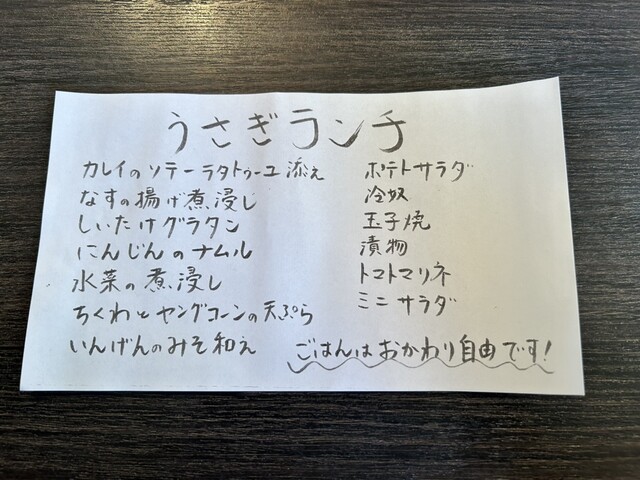 うさぎランチ
カレイのソテーラタトゥーユ添え
なすの揚げ煮浸し
しいたけグラタン
にんじんのナムル
水菜の煮浸し
ちくわとヤングコーンの天ぷら
いんげんのみそ和え
ポテトサラダ
冷奴
玉子焼
漬物
トマトマリネ
ミニサラダ
ごはんはおかわり自由です!